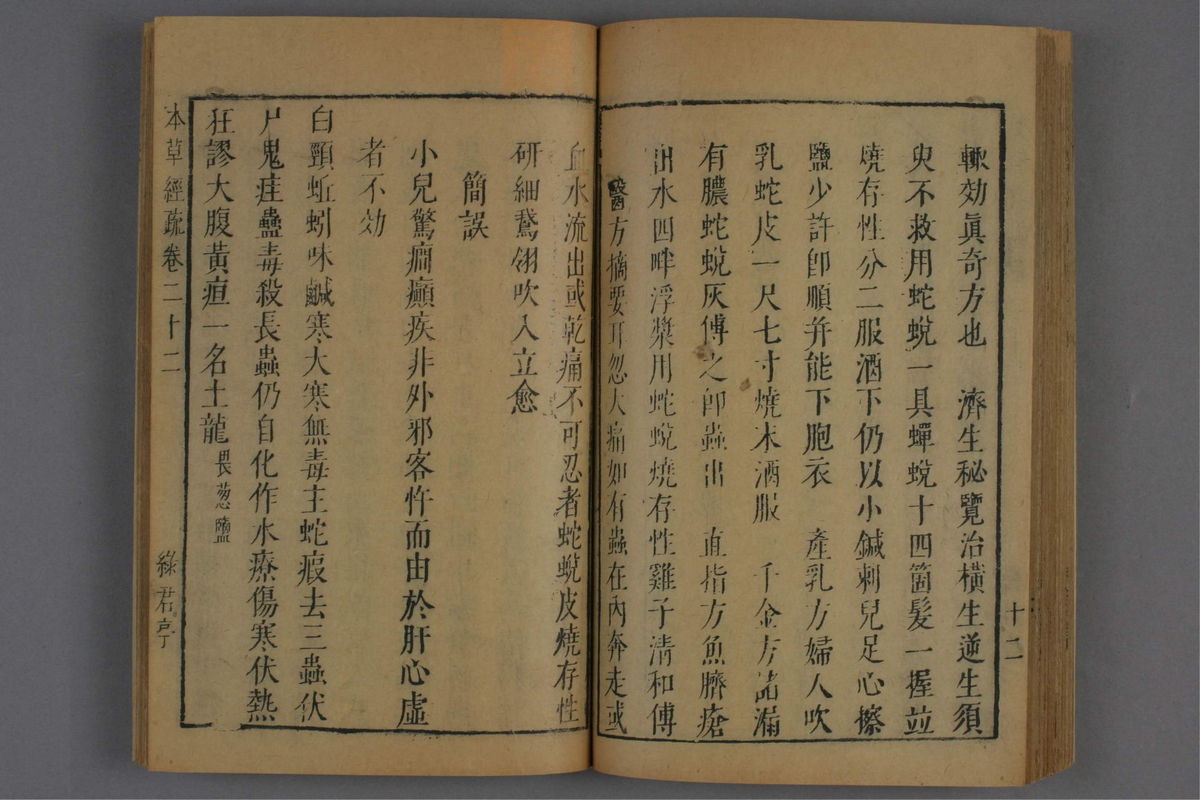 輙効眞奇方也　濟生秘覽治橫生逆生須
臾不救用蛇蛻一具蟬蛻十四箇髮一握並
燒存性分二服酒下仍以小鍼刺兒足心擦
鹽少許卽順并能下胞衣　產乳方婦人吹
乳蛇皮一尺七寸燒末酒服　千金方諸漏
有膿蛇蛻灰傅之卽蟲出　直指方魚臍瘡
出水四畔浮漿用蛇蛻燒存性雞子清和傅
醫方摘要耳忽大痛如有蟲在內奔走或
十二
血水流出或乾痛不可忍者蛇蛻皮燒存性
研細鵞翎吹入立愈
簡誤
小兒驚癎癲疾非外邪客忤而由於肝心虛
者不効
白頸蚯蚓味鹹寒大寒無毒主蛇瘕去三蟲伏
尸鬼疰蠱毒殺長蟲仍自化作水療傷寒伏熱
狂謬大腹黃疸一名土龍畏葱鹽
本草經疏卷二十二
綠君亭